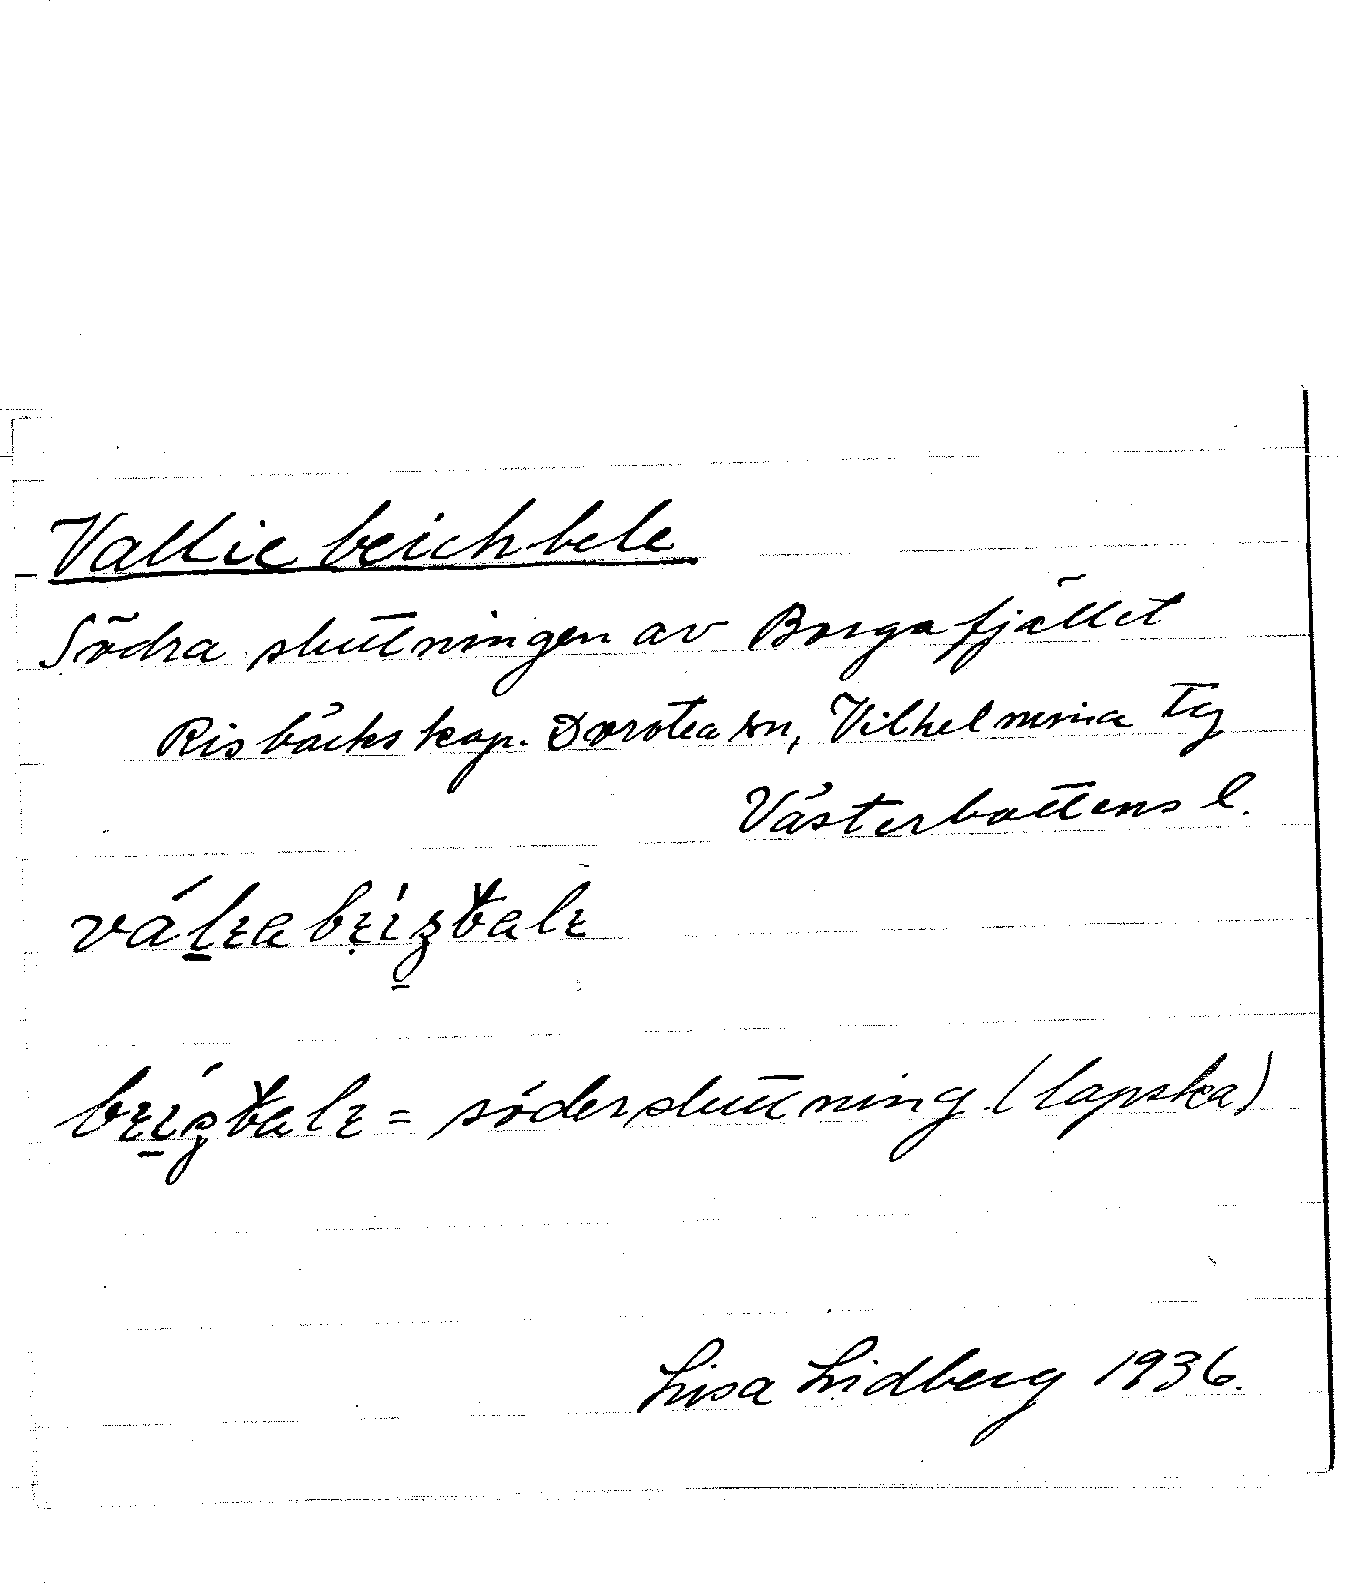 Vallie beichbele
Södra sluttningen av Borgafjället
Risbäcks kap. Dorotea sn, Vilhelmina tg
Västerbottens l.
= södersluttning (lapska)
Lisa Lidberg 1936.